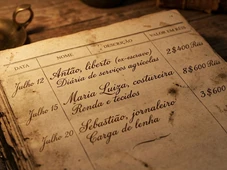 DATA NOME DESCRIÇÃO
Julho 12 Antão, liberto (ex-escravo) 2$400 Reis
Diária de serviços agrícolas
Julho 15 Maria Luiza, costureira 8$600 Reis
Renda e tecidos
Julho 20 Sebastião, jornaleiro 3$600
Carga de lenha